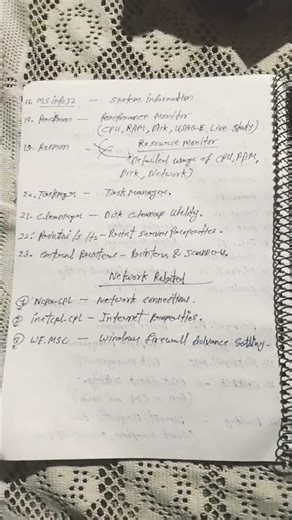 17. MSinfo32 — System Information
18. Perfmon — Performance Monitor
(CPU, RAM, Disk, USAGE, Live Study)
19. Resmon — Resource monitor
Detailed usage of CPU, RAM,
Disk, Network)
20. Taskmgr — Task Manager.
21. Cleanmgr — Disk cleanup Utility.
22. Printui /s /t2 — Print server Properties.
23. Control Printers — Printers & Scanners.
Network Related
① Ncpa.cpl — Network connection.
② inetcpl.cpl — Internet Properties.
③ WF.MSC — Windows firewall Advance Setting.